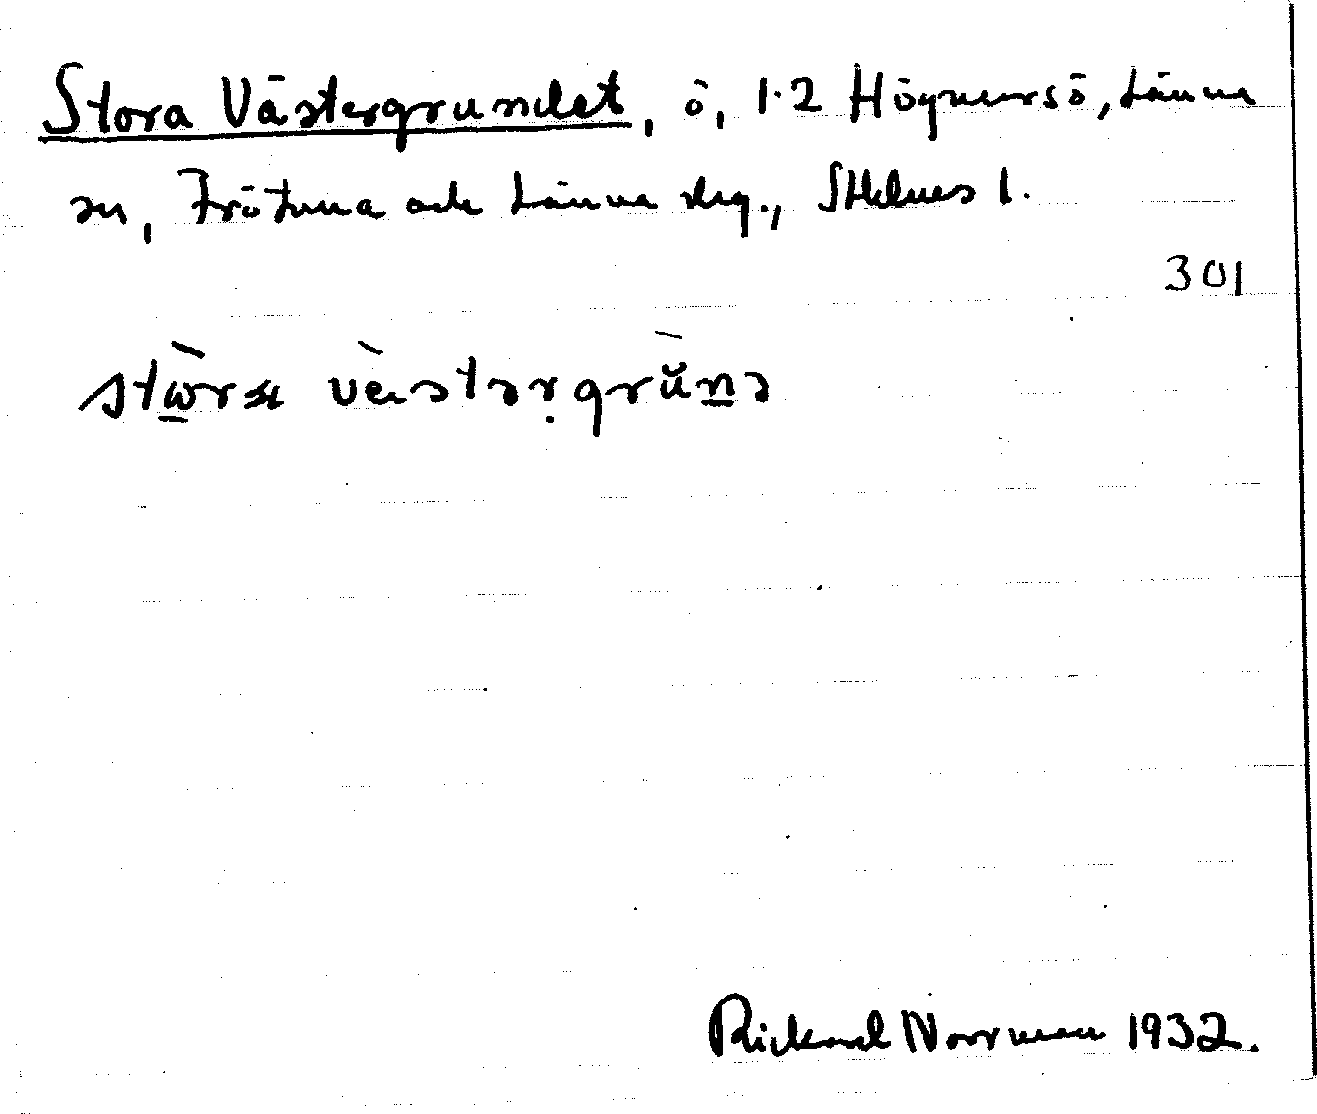 Stora Västergrundet, ö, 1·2 Högmarsö, Länna
sn, Frötuna och Länna skg., Sthlms l.
301
Rickard Norrman 1932.